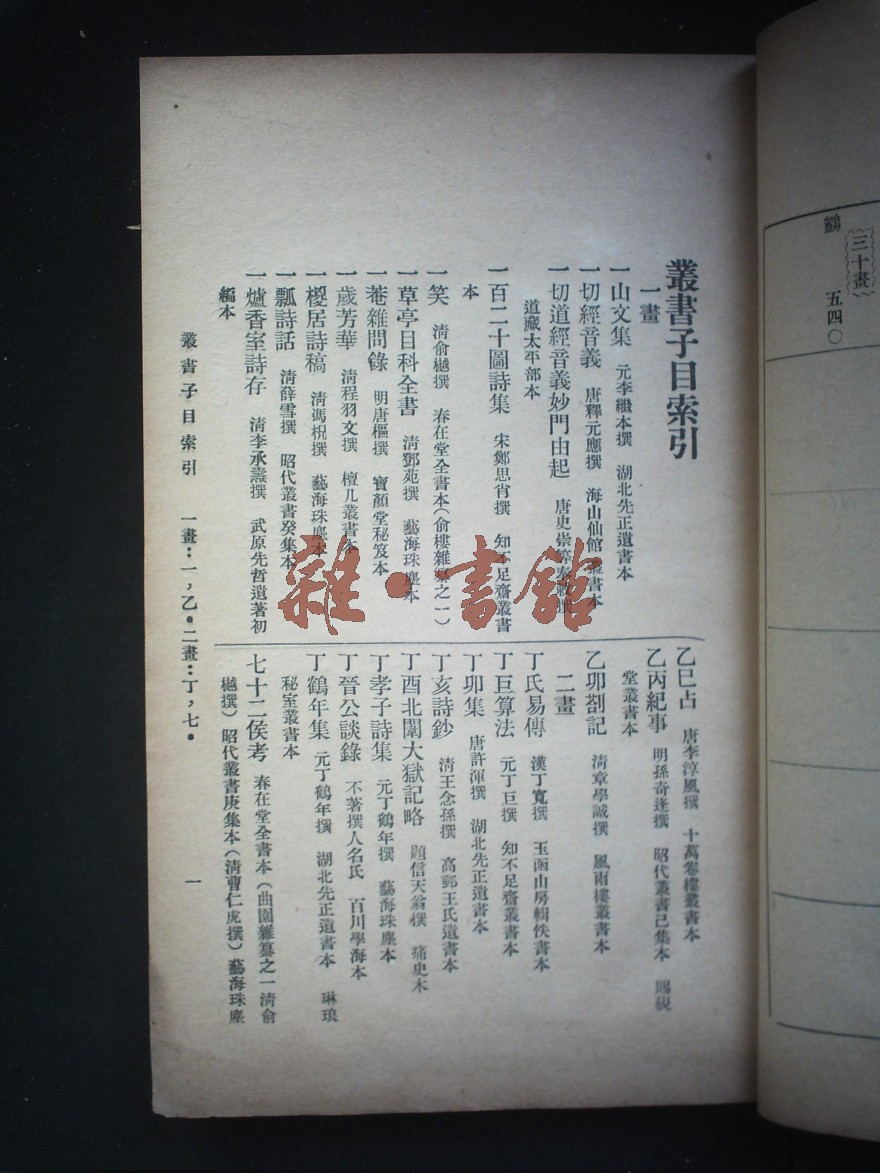 叢書子目索引
一畫
一山文集　元李繼本撰　湖北先正遺書本
一切經音義　唐釋元應撰　海山仙館叢書本
一切道經音義妙門由起　唐史崇等奉敕撰
道藏太平部本
一百二十圖詩集　宋鄭思肖撰　知不足齋叢書
本
一笑　清俞樾撰　春在堂全書本(俞樓雜纂之一)
一草亭目科全書　清鄧苑撰　藝海珠塵本
一菴雜問錄　明唐樞撰　寶顏堂秘笈本
一歲芳華　清程羽文撰　檀几叢書本
一㮣居詩稿　清馮棿撰　藝海珠塵本
一瓢詩話　清薛雪撰　昭代叢書癸集本
一爐香室詩存　清李承爵撰　武原先哲遺著初
編本
乙巳占　唐李淳風撰　十萬卷樓叢書本
乙丙紀事　明孫奇逢撰　昭代叢書己集本　賜硯
堂叢書本
乙卯劄記　清章學誠撰　風雨樓叢書本
二畫
丁氏易傳　漢丁寬撰　玉函山房輯佚書本
丁巨算法　元丁巨撰　知不足齋叢書本
丁卯集　唐許渾撰　湖北先正遺書本
丁亥詩鈔　清王念孫撰　高郵王氏遺書本
丁酉北闈大獄記略　題信天翁撰　痛史本
丁孝子詩集　元丁鶴年撰　藝海珠塵本
丁晉公談錄　不著撰人名氏　百川學海本
丁鶴年集　元丁鶴年撰　湖北先正遺書本　琳琅
秘室叢書本
七十二侯考　春在堂全書本(曲園雜纂之一清俞
樾撰)昭代叢書庚集本(清曹仁虎撰)藝海珠塵
叢書子目索引　一畫：一，乙。二畫：丁，七。
一
三十畫
五四〇
雜·書館